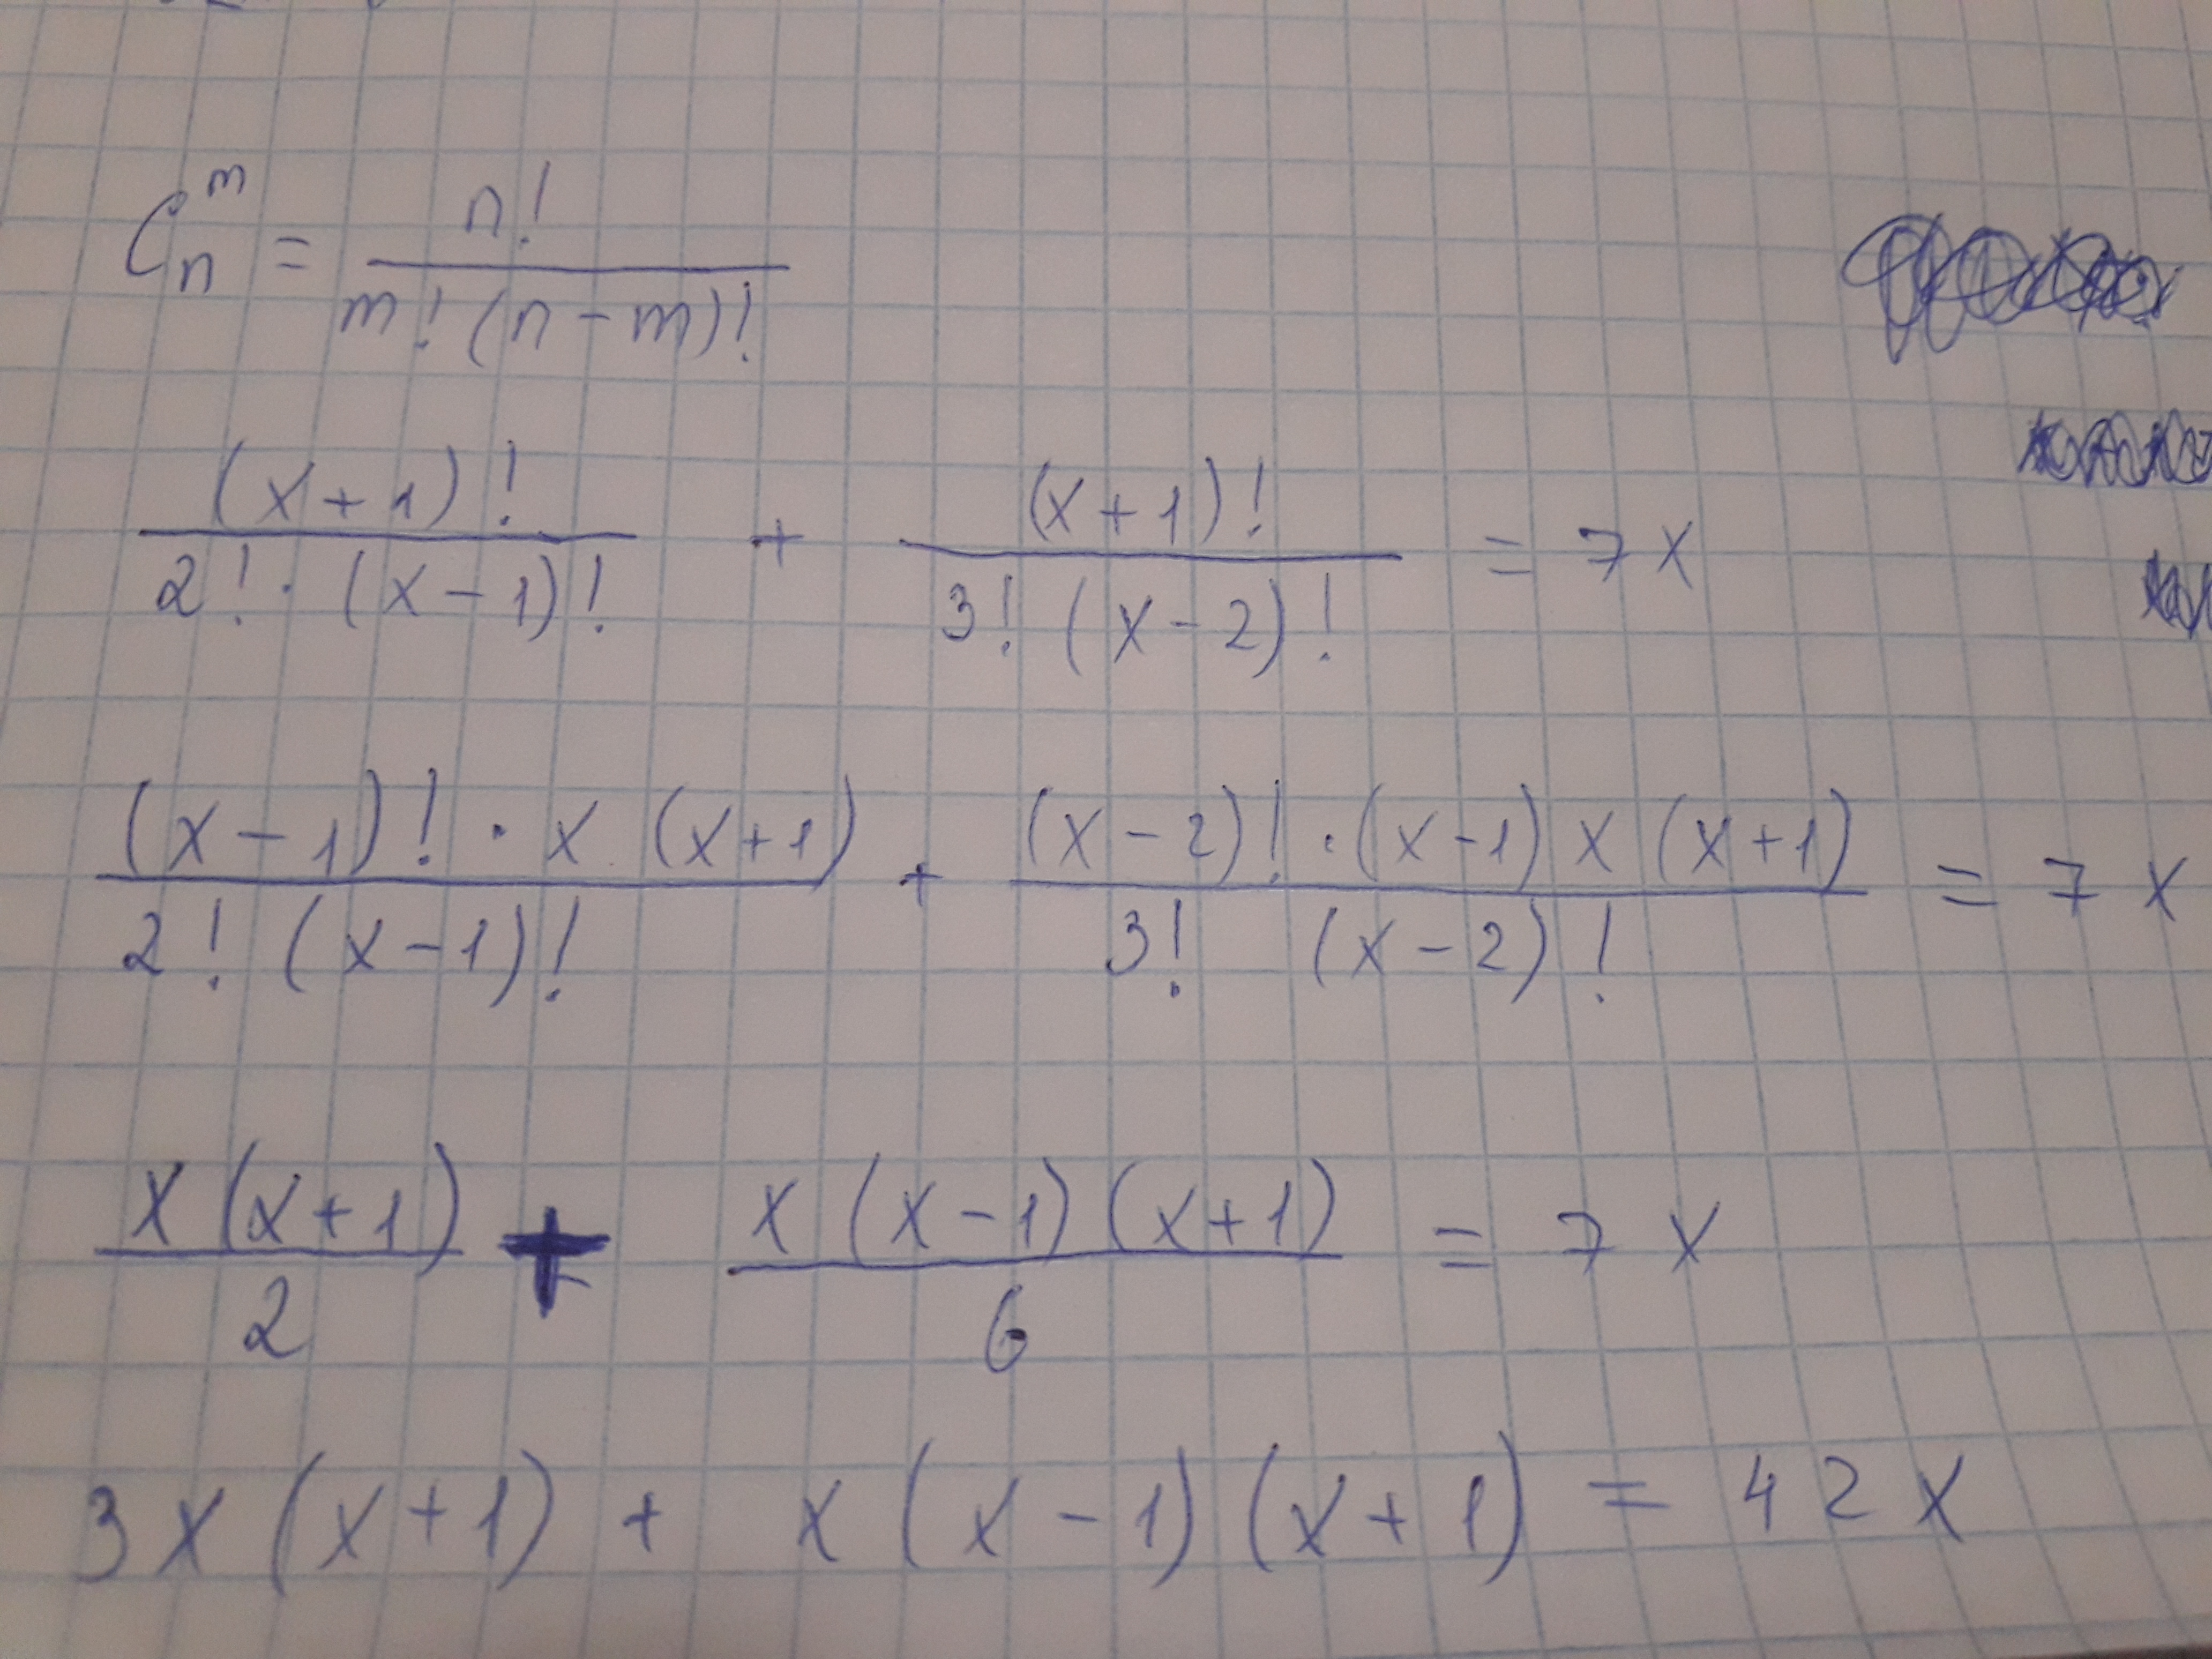 C_n^m = n! / (m! (n - m)!)
(x + 1)! / (2! · (x - 1)!) + (x + 1)! / (3! (x - 2)!) = 7x
((x - 1)! · x (x + 1)) / (2! (x - 1)!) + ((x - 2)! · (x - 1) x (x + 1)) / (3! (x - 2)!) = 7x
(x (x + 1)) / 2 + (x (x - 1) (x + 1)) / 6 = 7x
3x (x + 1) + x (x - 1) (x + 1) = 42x